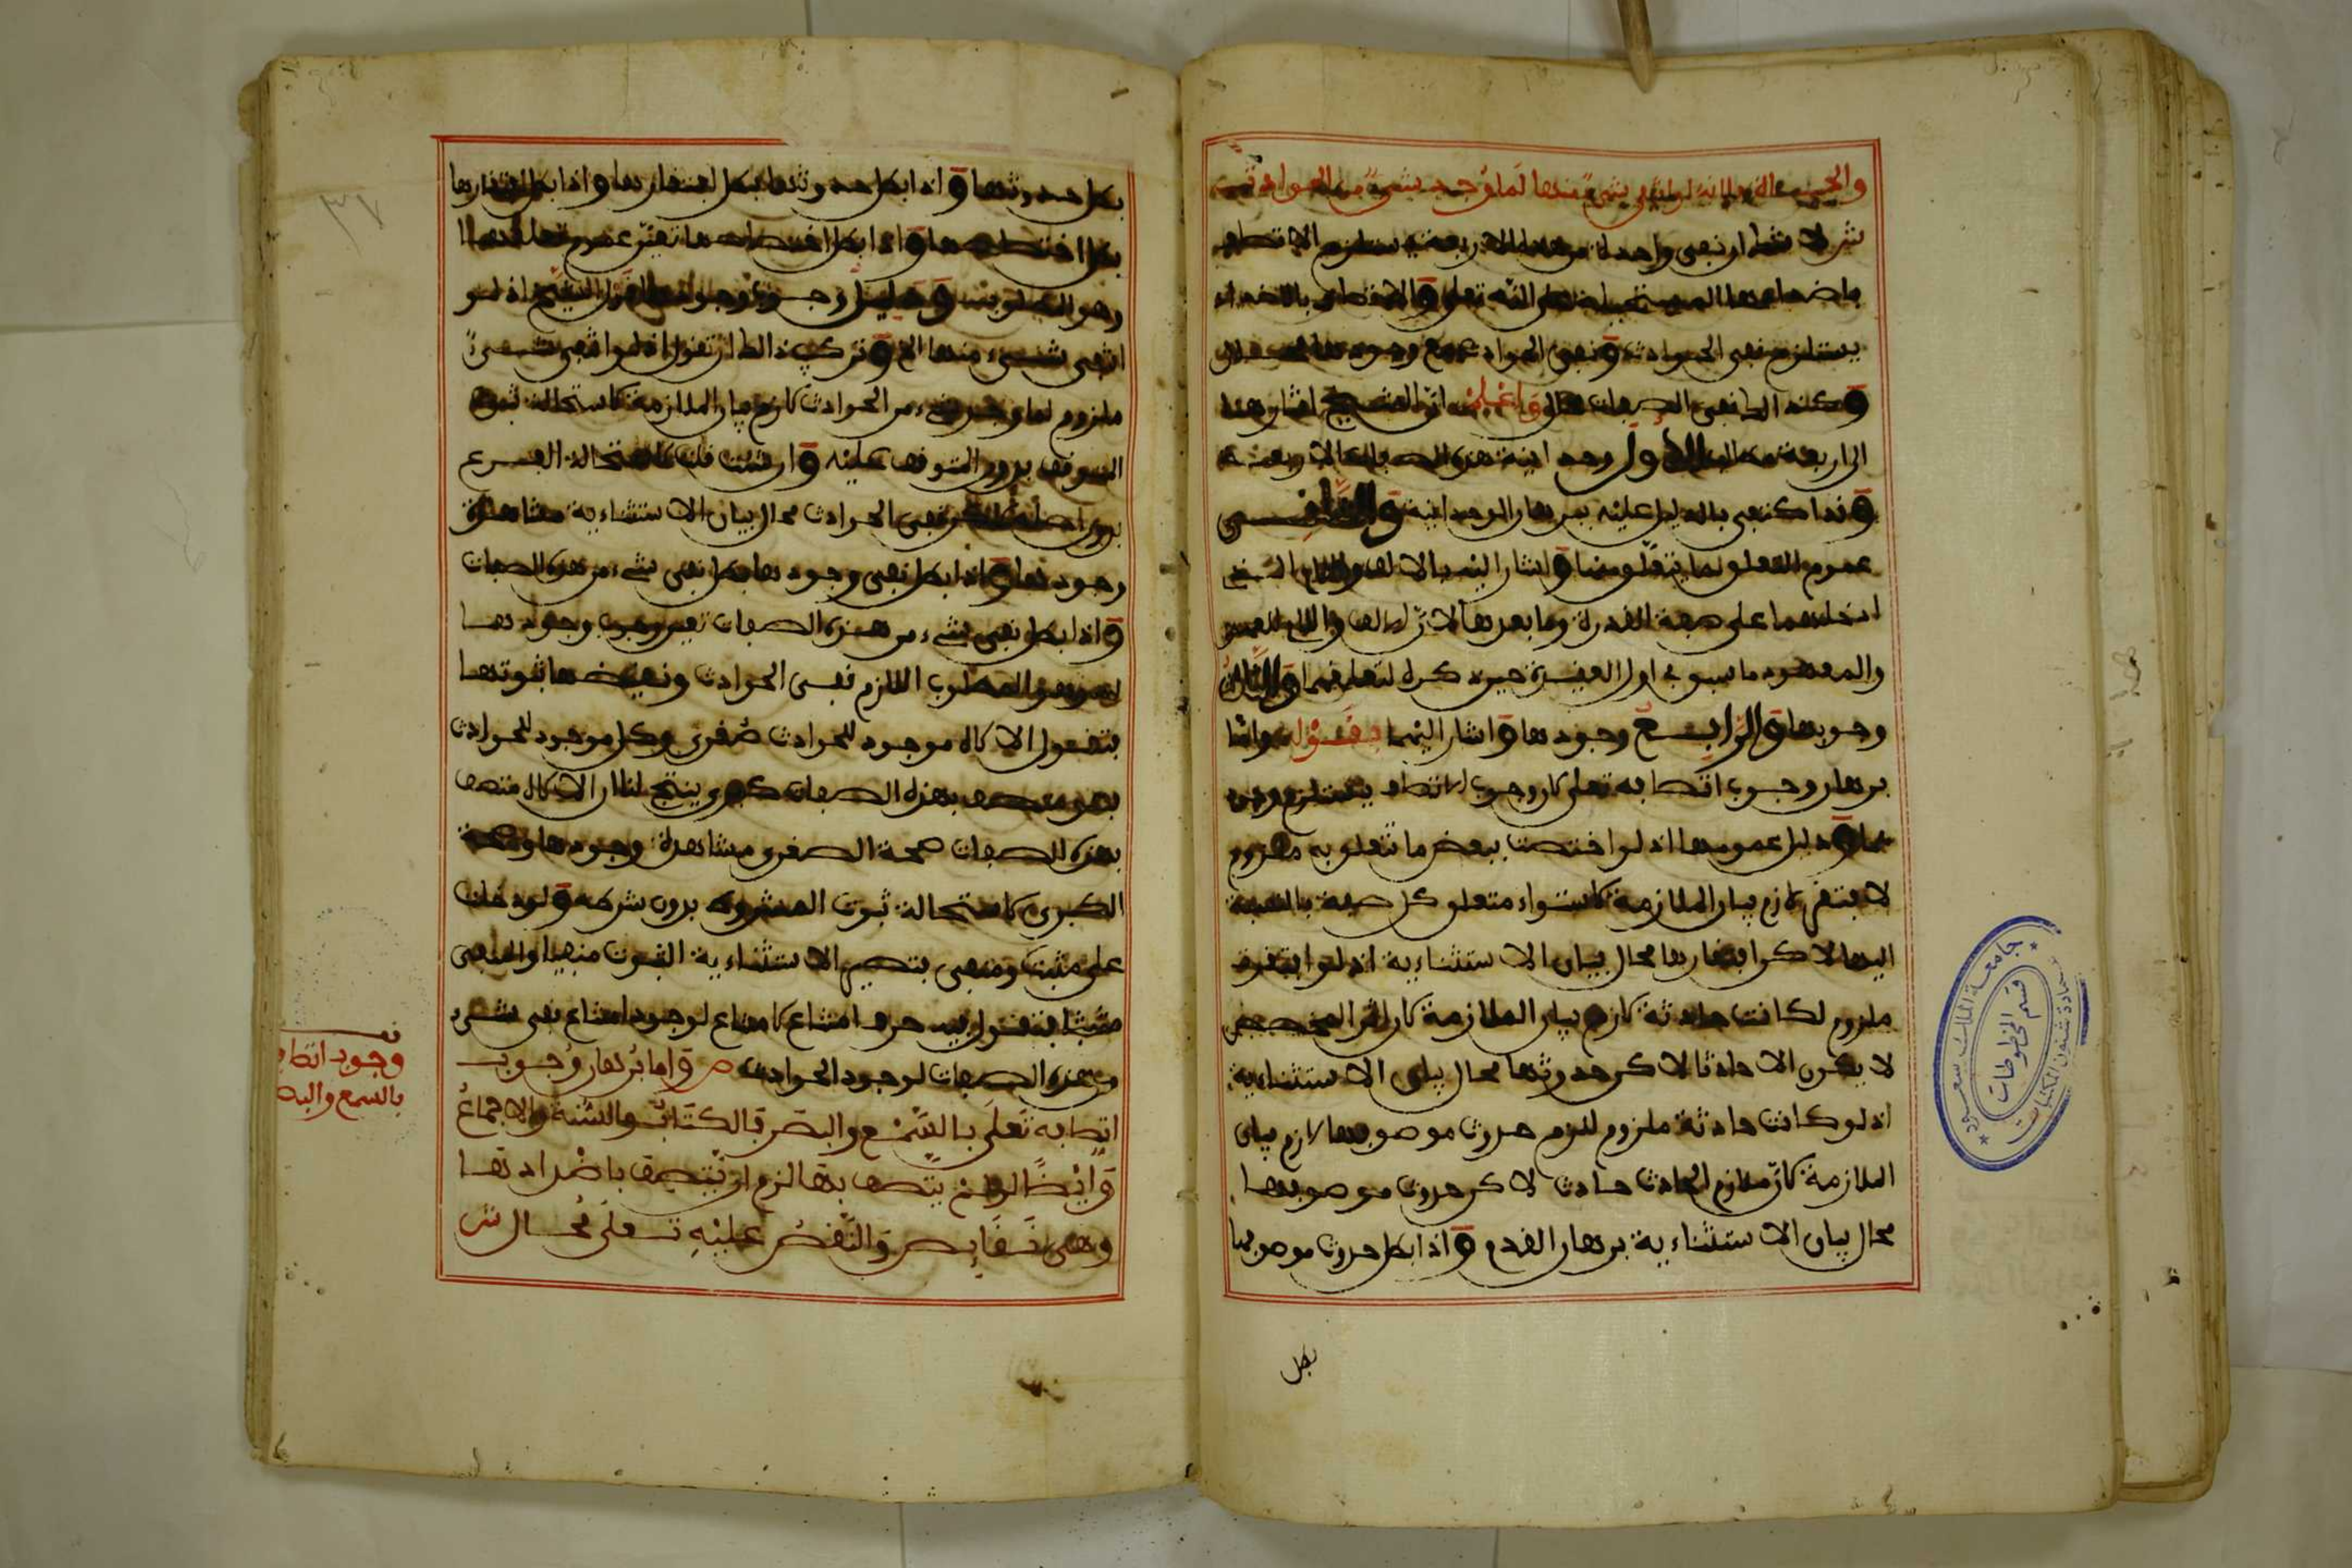 والحياة فلأنه لو انتفى شيء منها لما وجد شيء من الحوادث
ش لا شك ان نفي واحدة من هذه الاربعة يستلزم الاتصاف
باضدادها المستحيلة على الله تعلى والاتصاف بالاضداد
يستلزم نفي الحوادث ونفي الحوادث مع وجودها
وكذلك نفي الصفات محال واعلم ان الشيخ اشار هنا
الى اربعة مطالب الاول وحدانية هذه الصفات الاربعة
وقد اكتفى بالدليل عليه ببرهان الوحدانية والثاني
عموم التعلق لما يتعلق منها واشار اليه بالالف واللام التي
ادخلهما على صفة القدرة وما بعدها لان الالف واللام للعهد
والمعهود ما سبق في اول العقيدة حين ذكر تعلقها والثالث
وجوبها والرابع وجودها واشار اليهما بقوله واما
برهان وجوب اتصافه تعلى لان وجوب الاتصاف يستلزم وجود
ها ودليل عمومها اذ لو اختصت ببعض ما تتعلق به ملزوم
لافتقر لازم بيان الملازمة لاستواء متعلق كل صفة بالنسبة
اليها لاكن افتقارها محال بيان الاستثنائية اذ لو افتقرت
ملزوم لكانت حادثة لازم بيان الملازمة لان اثر المخصص
لا يكون الا حادثا لاكن حدوثها محال بيان الاستثنائية
اذ لو كانت حادثة ملزوم للزم حدوث موصوفها لازم بيان
الملازمة لان ملازم الحادث حادث لاكن حدوث موصوفها
محال بيان الاستثنائية برهان القدم واذا بطل حدوث موصوفها
بطل
بطل حدوثها واذا بطل حدوثها بطل افتقارها واذا بطل افتقارها
بطل اختصاصها واذا بطل اختصاصها تعين عموم تعلقها
وهو المطلوب ودليل وجوبها ووجودها قول الشيخ اذ لو
انتفى شيء منها الخ وتركيب ذلك ان تقول اذ لو انتفى شيء
ملزوم لما وجد شيء من الحوادث لازم بيان الملازمة لاستحالة ثبوت
الموقوف بدون المتوقف عليه وان شئت قلت لاستحالة الفرع
بدون اصله لاكن نفي الحوادث محال بيان الاستثنائية مشاهدة
وجودها واذا بطل نفي وجودها بطل نفي شيء من هذه الصفات
واذا بطل نفي شيء من هذه الصفات تعين وجوب وجودها
وهو المطلوب اللازم نفي الحوادث ونقيضها ثبوتها
فتقول الاله موجود للحوادث صغرى وكل موجود للحوادث
فهو متصف بهذه الصفات كبرى ينتج لنا ان الاله متصف
بهذه الصفات صحة الصغرى مشاهدة وجودها وصحة
الكبرى لاستحالة ثبوت المشروط بدون شرطه ولو دخلت
على مثبت ومنفي فتصير الاستثنائية الثبوت منفيا والمنفي
مثبتا فتقول حرف امتناع لامتناع لوجود امتناع نفي شيء
من هذه الصفات لوجود الحوادث ص واما برهان وجوب
اتصافه تعلى بالسمع والبصر فالكتاب والسنة والاجماع
وايضا لو لم يتصف بها لزم ان يتصف باضدادها
وهي نقايص والنقص عليه تعلى محال ش
وجوب اتصا
بالسمع والبص
٣٧
جامعة الملك سعود
عمادة شئون المكتبات
قسم المخطوطات